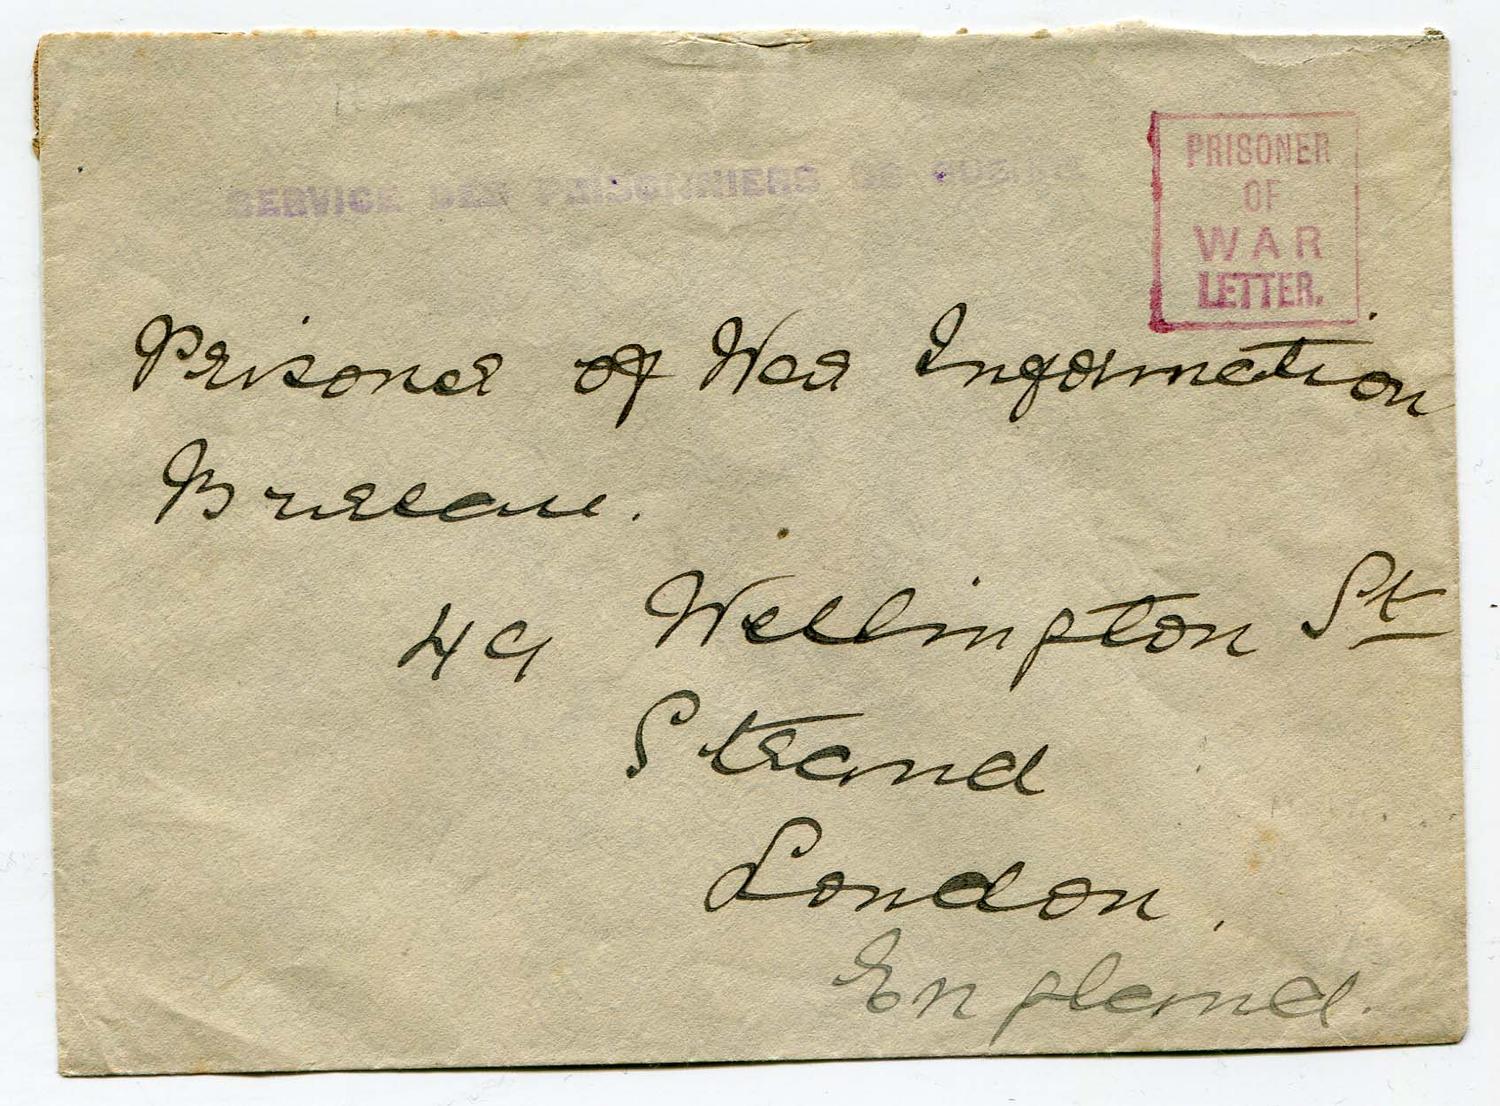 SERVICE DES PRISONNIERS DE GUERRE
PRISONER
OF
WAR
LETTER.
Prisoner of War Information
Bureau.
49 Wellington St
Strand
London.
England.